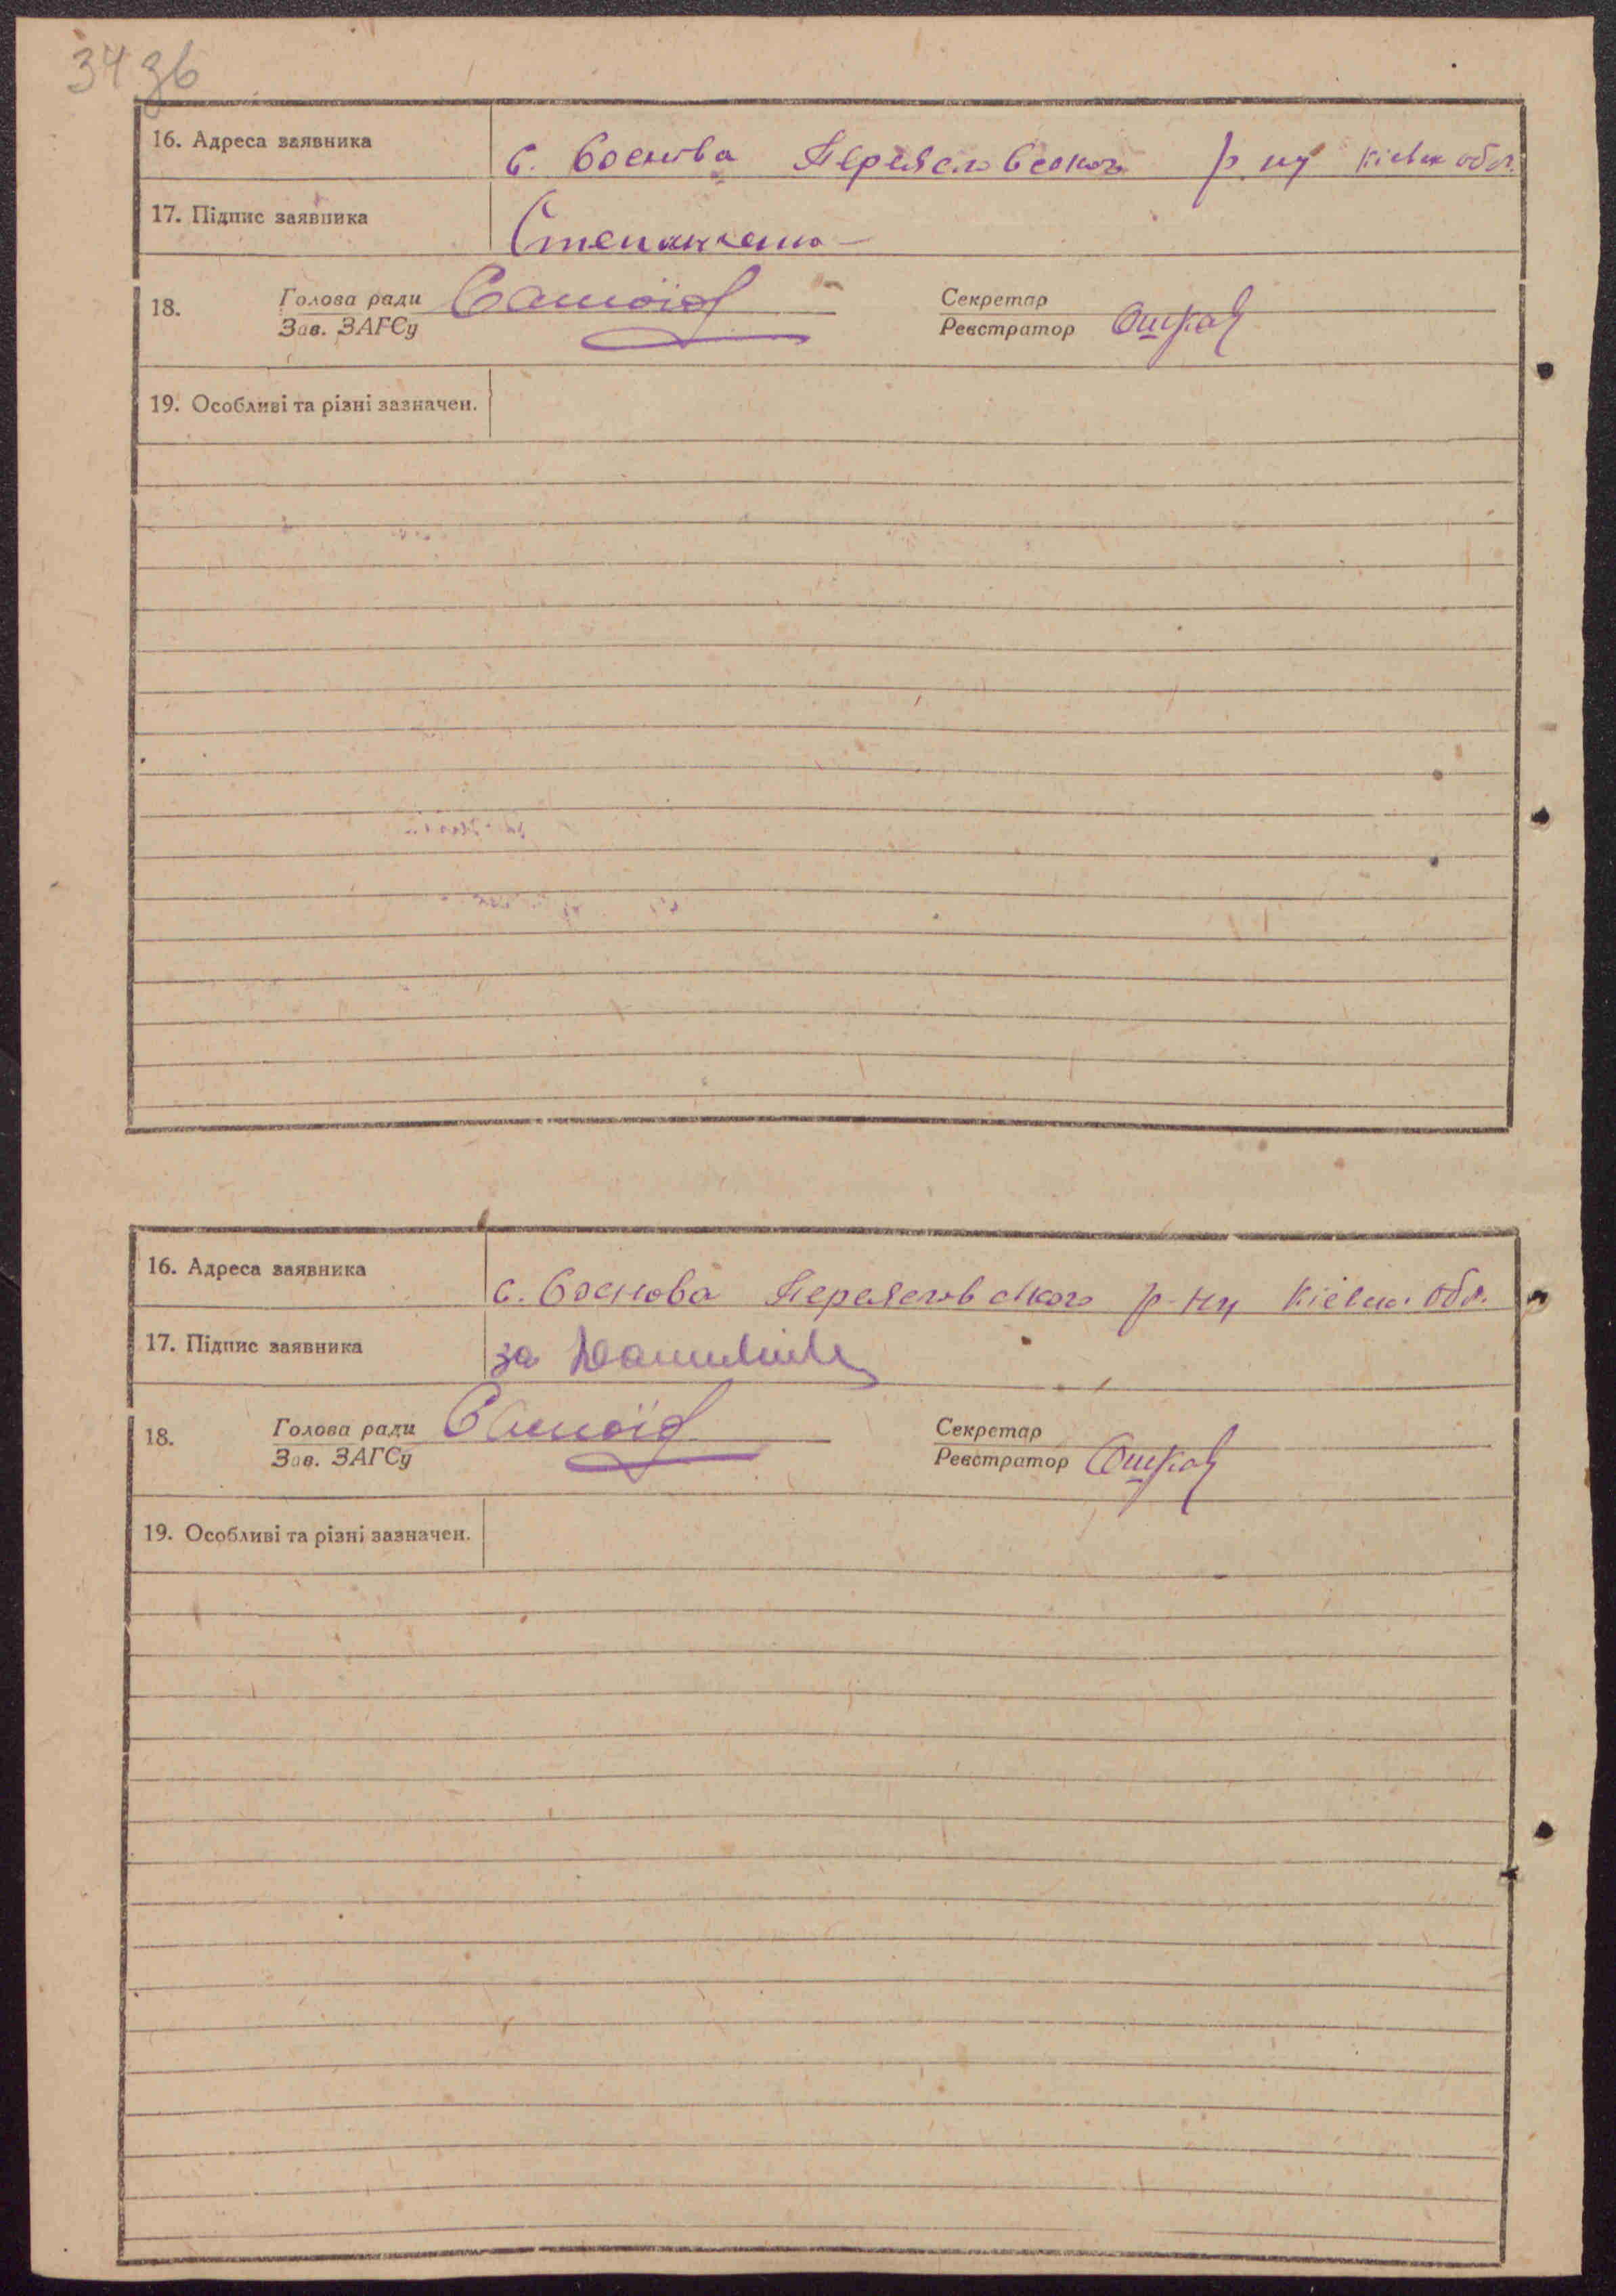 34 зв
16. Адреса заявника с. Соснова Переяславського р-ну Київськ. обл.
17. Підпис заявника Степаненко
18. Голова ради Самойд Секретар
Зав. ЗАГСу Реєстратор
19. Особливі та різні зазначен.
16. Адреса заявника с. Соснова Переяславського р-ну Київськ. обл.
17. Підпис заявника за
18. Голова ради Самойд Секретар
Зав. ЗАГСу Реєстратор
19. Особливі та різні зазначен.